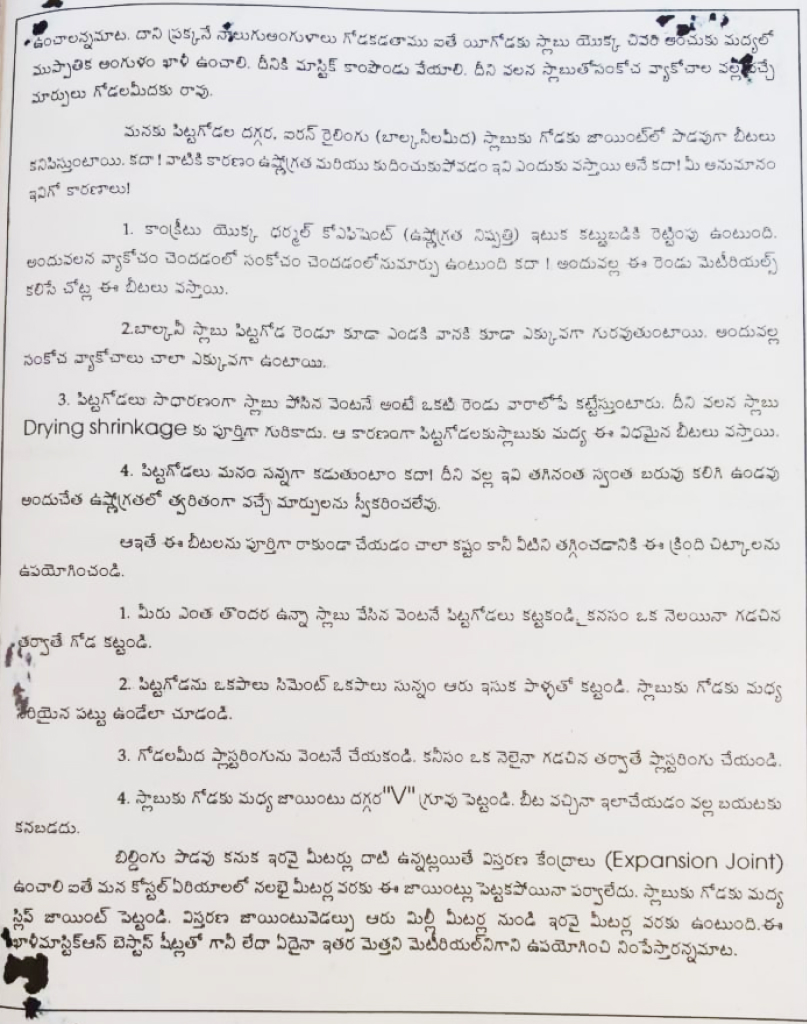 ఉంచాలన్నమాట. దాని ప్రక్కనే నాలుగుఅంగుళాలు గోడకడతాము ఐతే యీగోడకు స్లాబు యొక్క చివరి అంచుకు మద్యలో
ముప్పాతిక అంగుళం ఖాళీ ఉంచాలి. దీనికి మాస్టిక్ కాంపౌండు వేయాలి. దీని వలన స్లాబుతోసంకోచ వ్యాకోచాల వల్ల వచ్చే
మార్పులు గోడలమీదకు రావు.
మనకు పిట్టగోడల దగ్గర, ఐరన్ రైలింగు (బాల్కనీలమీద) స్లాబుకు గోడకు జాయింట్‌లో పొడవుగా బీటలు
కనిపిస్తుంటాయి. కదా ! వాటికి కారణం ఉష్ణోగ్రత మరియు కుదించుకుపోవడం ఇవి ఎందుకు వస్తాయి అనే కదా! మీ అనుమానం
ఇవిగో కారణాలు!
1. కాంక్రీటు యొక్క థర్మల్ కోఎఫిషెంట్ (ఉష్ణోగ్రత నిష్పత్తి) ఇటుక కట్టుబడికి రెట్టింపు ఉంటుంది.
అందువలన వ్యాకోచం చెందడంలో సంకోచం చెందడంలోనుమార్పు ఉంటుంది కదా ! అందువల్ల ఈ రెండు మెటీరియల్స్
కలిసే చోట్ల ఈ బీటలు వస్తాయి.
2.బాల్కనీ స్లాబు పిట్టగోడ రెండూ కూడా ఎండకి వానకి కూడా ఎక్కువగా గురవుతుంటాయి. అందువల్ల
సంకోచ వ్యాకోచాలు చాలా ఎక్కువగా ఉంటాయి.
3. పిట్టగోడలు సాధారణంగా స్లాబు పోసిన వెంటనే అంటే ఒకటి రెండు వారాలోపే కట్టేస్తుంటారు. దీని వలన స్లాబు
Drying shrinkage కు పూర్తిగా గురికాదు. ఆ కారణంగా పిట్టగోడలకుస్లాబుకు మధ్య ఈ విధమైన బీటలు వస్తాయి.
4. పిట్టగోడలు మనం సన్నగా కడుతుంటాం కదా! దీని వల్ల ఇవి తగినంత స్వంత బరువు కలిగి ఉండవు
అందుచేత ఉష్ణోగ్రతలో త్వరితంగా వచ్చే మార్పులను స్వీకరించలేవు.
ఆఇతే ఈ బీటలను పూర్తిగా రాకుండా చేయడం చాలా కష్టం కానీ వీటిని తగ్గించడానికి ఈ క్రింది చిట్కాలను
ఉపయోగించండి.
1. మీరు ఎంత తొందర ఉన్నా స్లాబు వేసిన వెంటనే పిట్టగోడలు కట్టకండి, కనసం ఒక నెలయినా గడచిన
తర్వాతే గోడ కట్టండి.
2. పిట్టగోడను ఒకపాలు సిమెంట్ ఒకపాలు సున్నం ఆరు ఇసుక పాళ్ళతో కట్టండి. స్లాబుకు గోడకు మధ్య
సరియైన పట్టు ఉండేలా చూడండి.
3. గోడలమీద ప్లాస్టరింగును వెంటనే చేయకండి. కనీసం ఒక నెలైనా గడచిన తర్వాతే ప్లాస్టరింగు చేయండి.
4. స్లాబుకు గోడకు మధ్య జాయింటు దగ్గర"V" గ్రూవు పెట్టండి. బీట వచ్చినా ఇలాచేయడం వల్ల బయటకు
కనబడదు.
బిల్డింగు పొడవు కనుక ఇరవై మీటర్లు దాటి ఉన్నట్లయితే విస్తరణ కేంద్రాలు (Expansion Joint)
ఉంచాలి ఐతే మన కోస్టల్ ఏరియాలలో నలభై మీటర్ల వరకు ఈ జాయింట్లు పెట్టకపోయినా పర్వాలేదు. స్లాబుకు గోడకు మధ్య
స్లిప్ జాయింట్ పెట్టండి. విస్తరణ జాయింటువెడల్పు ఆరు మిల్లీ మీటర్ల నుండి ఇరవై మీటర్ల వరకు ఉంటుంది.ఈ
ఖాళీమాస్టిక్ఆస్ బెస్టాస్ షీట్లతో గానీ లేదా ఏదైనా ఇతర మెత్తని మెటీరియల్‌నిగాని ఉపయోగించి నింపేస్తారన్నమాట.